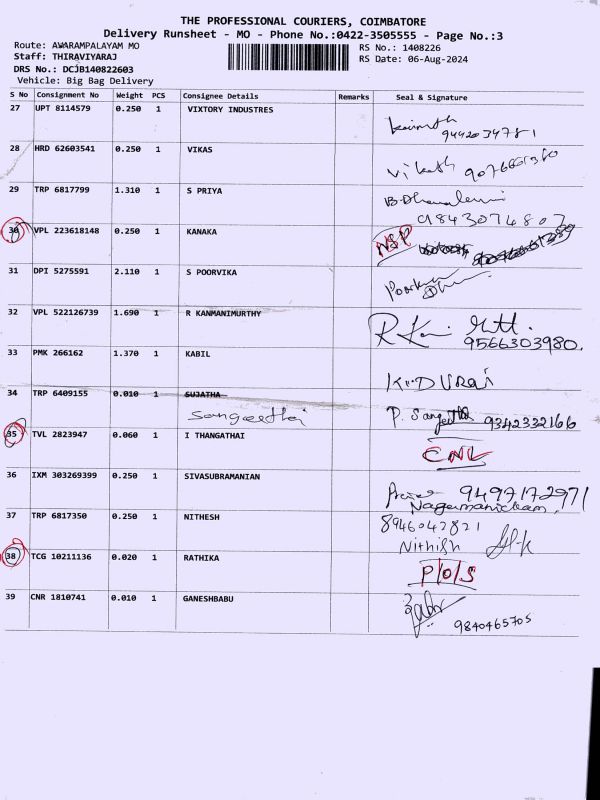 THE PROFESSIONAL COURIERS, COIMBATORE
Delivery Runsheet - MO - Phone No.:0422-3505555 - Page No.:3
Route: AWARAMPALAYAM MO
RS No.: 1408226
Staff: THIRAVIYARAJ
RS Date: 06-Aug-2024
DRS No.: DCJB140822603
Vehicle: Big Bag Delivery
S No Consignment No Weight PCS Consignee Details Remarks Seal & Signature
27 UPT 8114579 0.250 1 VIXTORY INDUSTRES
9442034781
28 HRD 62603541 0.250 1 VIKAS
Vikash
29 TRP 6817799 1.310 1 S PRIYA
9843074807
30 VPL 223618148 0.250 1 KANAKA NSP
31 DPI 5275591 2.110 1 S POORVIKA
32 VPL 522126739 1.690 1 R KANMANIMURTHY
9566303980.
33 PMK 266162 1.370 1 KABIL
34 TRP 6409155 0.010 1 SUJATHA
Sangeethai P. Sangeetha 9342332166
35 TVL 2823947 0.060 1 I THANGATHAI
CNL
36 IXM 303269399 0.250 1 SIVASUBRAMANIAN 9497172971
Nagamanickam
37 TRP 6817350 0.250 1 NITHESH 8946042821
Nithish
38 TCG 10211136 0.020 1 RATHIKA
P/O/S
39 CNR 1810741 0.010 1 GANESHBABU
9840465705